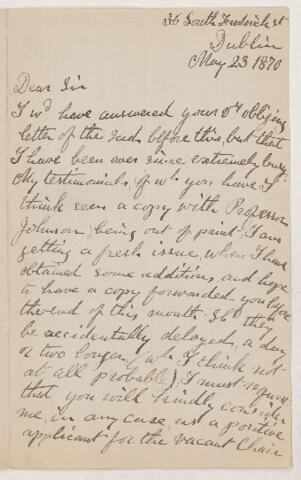 36 South Frederick st
Dublin
May 23 1870
Dear Sir
I wd have answered your obliging
letter of the 2nd before this, but that
I have been ever since extremely busy.
My testimonials (of wh. you have, I
think seen a copy with Professor
Johnson) being out of print, I am
getting a fresh issue, when I have
obtained some additions, and hope
to have a copy forwarded you before
the end of this month. Shd they
be accidentally delayed, a day
or two longer, (wh. I think not
at all probable), I must request
that you will kindly consider
me, in any case, as a positive
applicant for the vacant Chair